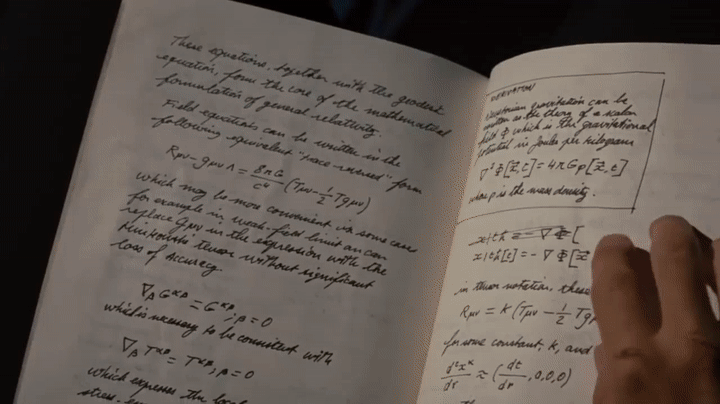 These equations, together with the geodesic
equation, form the core of the mathematical
formulation of general relativity.
Field equations can be written in the
following equivalent "trace-reversed" form
Rμν - gμν Λ = 8πG/c⁴ (Tμν - 1/2 T gμν)
which may be more convenient in some cases
for example in weak-field limit an can
replace gμν in the expression with the
Minkowski tensor without significant
loss of accuracy.
∇β G^αβ = G^αβ;β = 0
which is necessary to be consistent with
∇β T^αβ = T^αβ;β = 0
which expresses the local
stress
DERIVATION
Newtonian gravitation can be
written as the theory of a scalar
field Φ which is the gravitational
potential in joules per kilogram
∇²Φ[x⃗,t] = 4πGρ[x⃗,t]
where ρ is the mass density.
[t] = -∇Φ[x⃗
in tensor notation, these
Rμν = K (Tμν - 1/2 T g
for some constant, K, and
≈ (dt/dτ, 0,0,0)